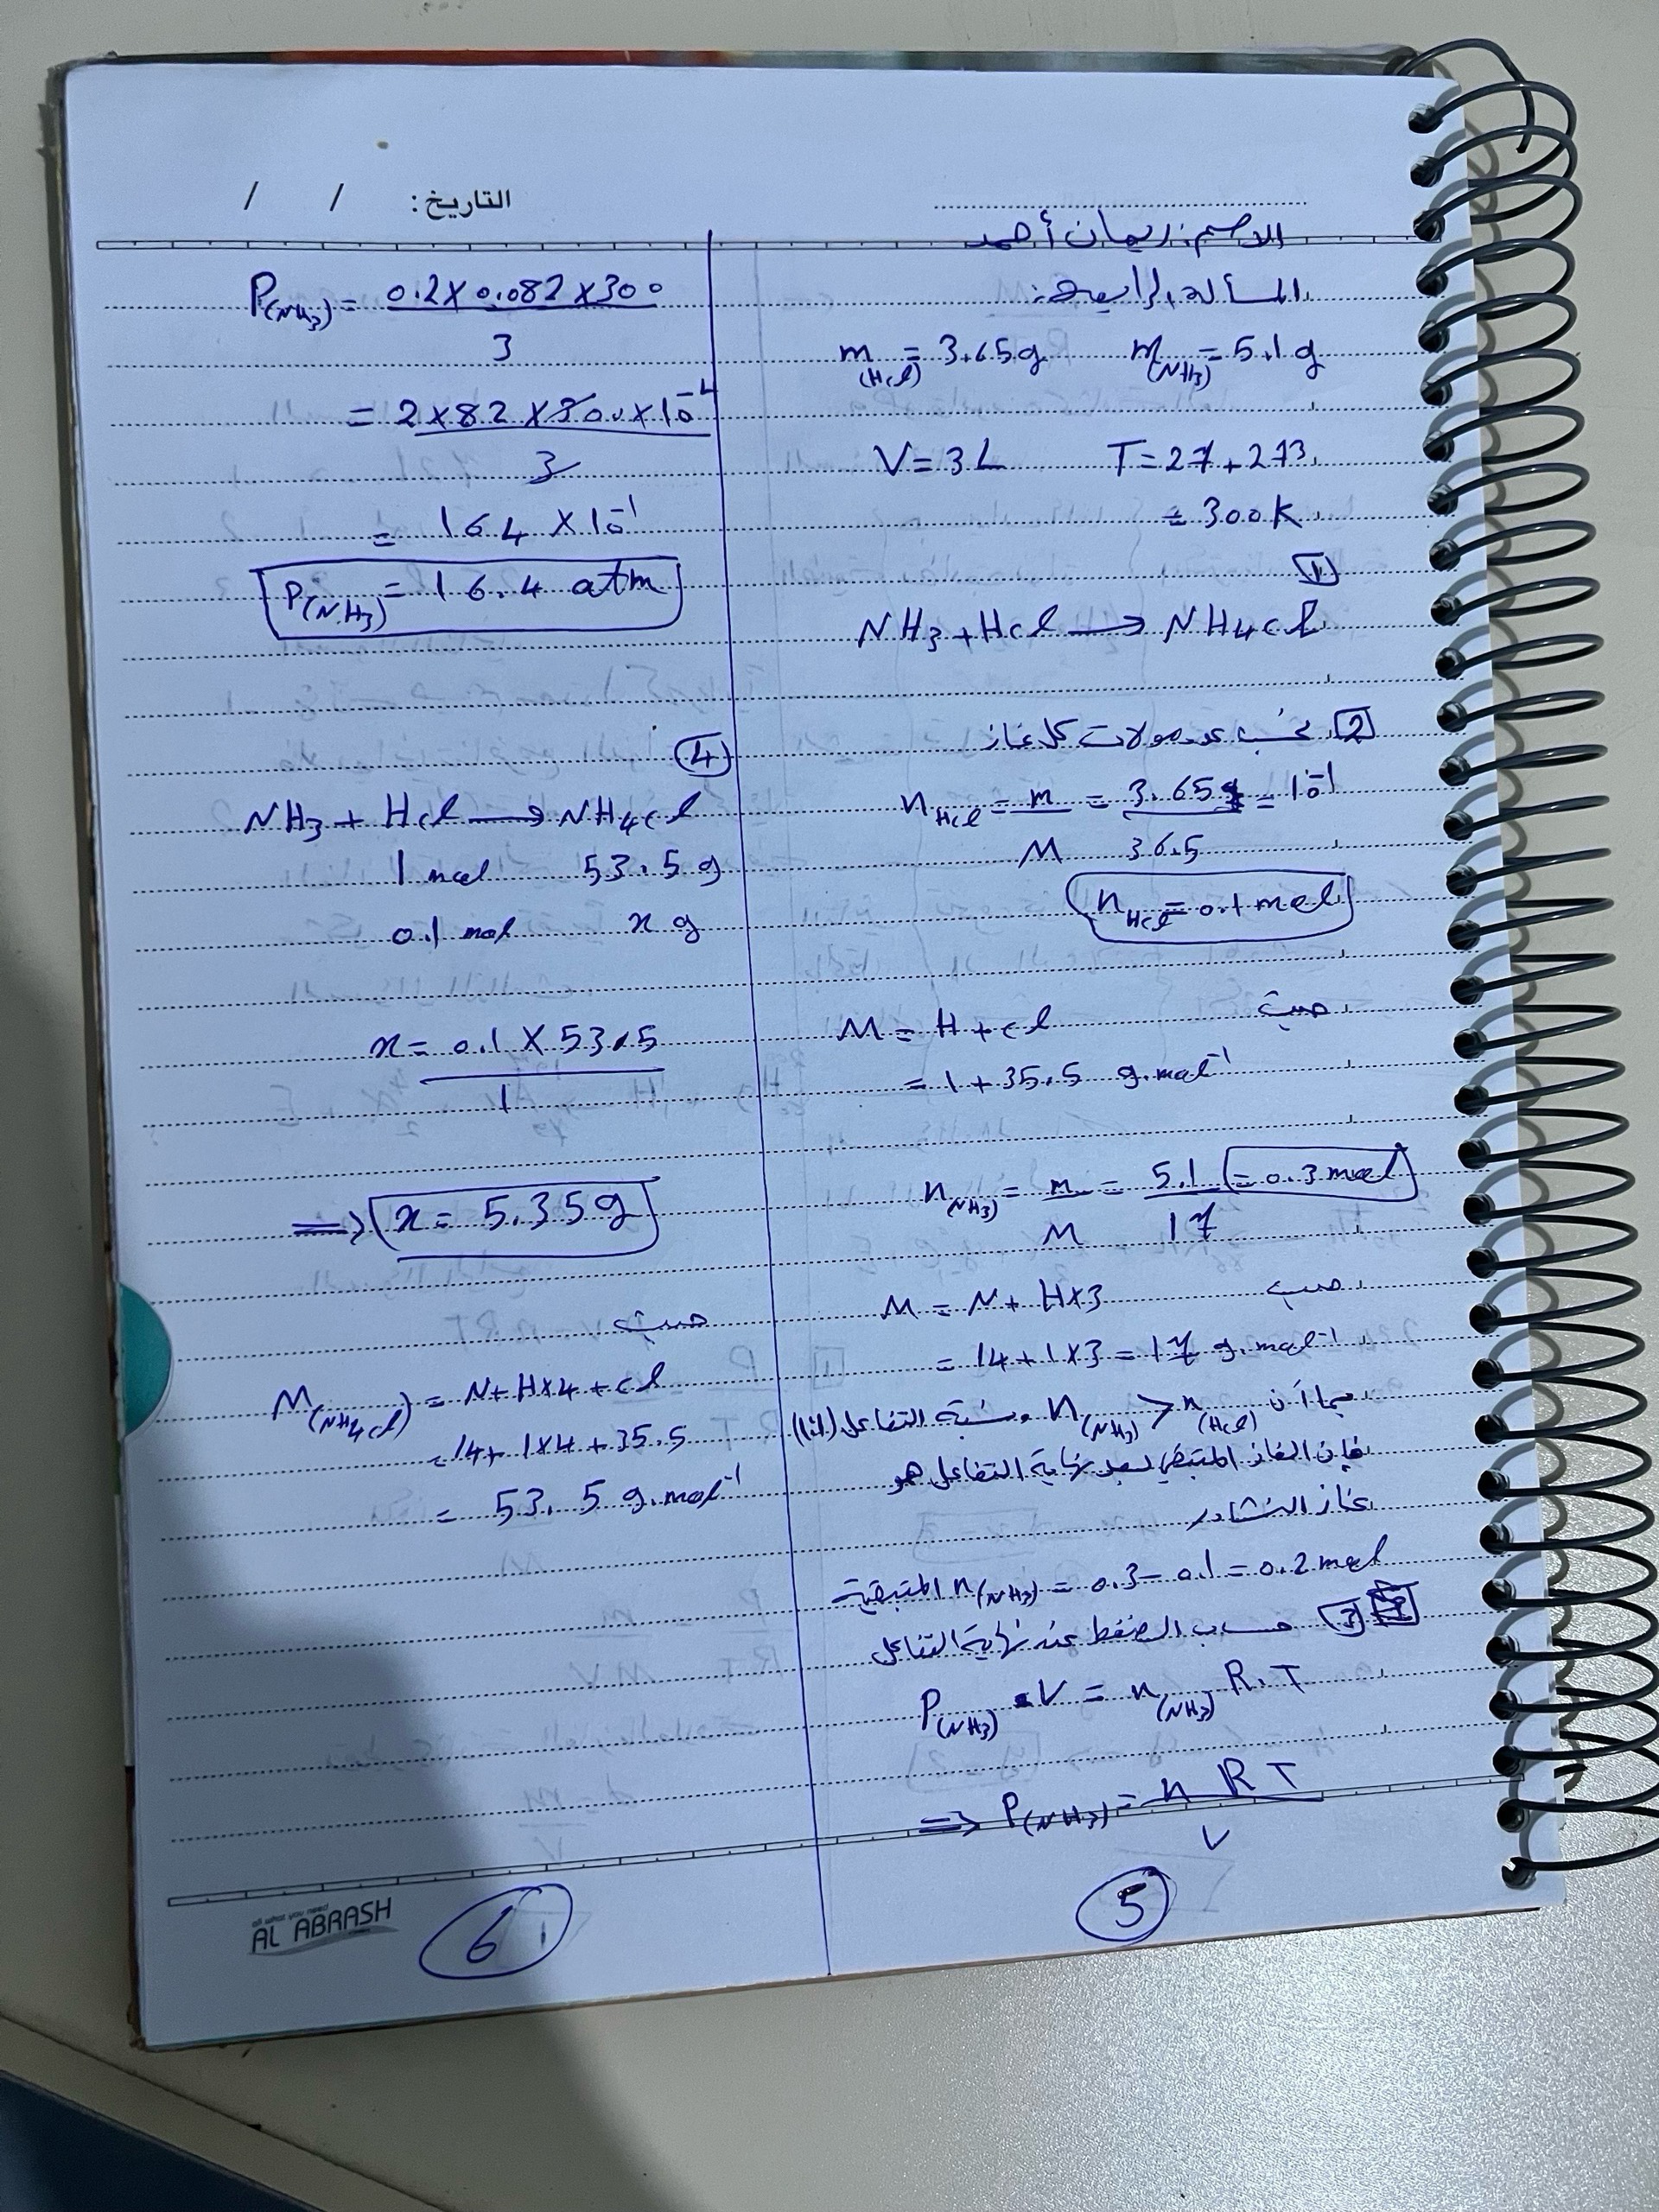 التاريخ: / /
الاسم: ريمان أحمد
المسألة الرابعة:
m(HCl) = 3.65 g m(NH3) = 5.1 g
V = 3 L T = 27 + 273
= 300 K
1
NH3 + HCl → NH4Cl
2 نحسب عدد مولات كل غاز
nHCl = m/M = 3.65/36.5 = 10^-1
nHCl = 0.1 mol
حيث
M = H + Cl
= 1 + 35.5 g.mol^-1
n(NH3) = m/M = 5.1/17 = 0.3 mol
حيث
M = N + H×3
= 14 + 1×3 = 17 g.mol^-1
بما أن n(NH3) > n(HCl) ونسبة التفاعل (1:1)
فإن الغاز المتبقي بعد نهاية التفاعل هو
غاز النشادر
n(NH3) المتبقية = 0.3 - 0.1 = 0.2 mol
3 حساب الضغط عند نهاية التفاعل
P(NH3) . V = n(NH3) R. T
⇒ P(NH3) = n R T / V
5
P(NH3) = 0.2 × 0.082 × 300 / 3
= 2 × 82 × 300 × 10^-4 / 3
= 164 × 10^-1
P(NH3) = 16.4 atm
4
NH3 + HCl → NH4Cl
1 mol 53.5 g
0.1 mol x g
x = 0.1 × 53.5 / 1
⇒ x = 5.35 g
حيث
M(NH4Cl) = N + H×4 + Cl
= 14 + 1×4 + 35.5
= 53.5 g.mol^-1
6
all what you need
AL ABRASH